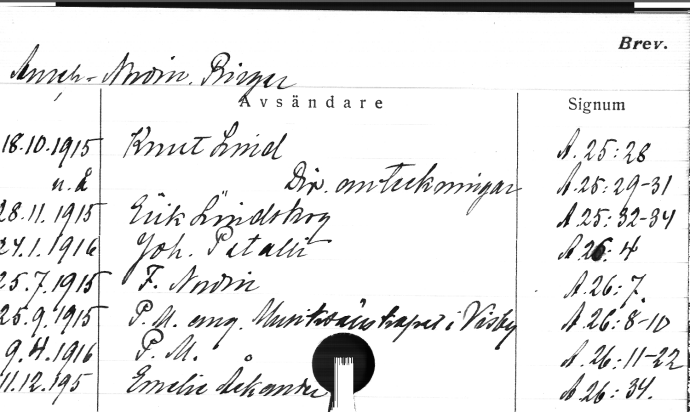 Brev.
Anrep-Nordin, Birger
Avsändare Signum
18.10.1915 Knut Lind A. 25:28
u. å Div. anteckningar A 25:29-31
28.11.1915 Erik Lindskog A 25:32-34
24.1.1916 Joh. A 26:4
25.7.1915 F. Nordin A 26:7.
25.9.1915 P. M. ang. Musiksällskapet i Visby A 26:8-10
9.4.1916 P. M. A. 26:11-22
11.12.195 Emelie A 26:34.